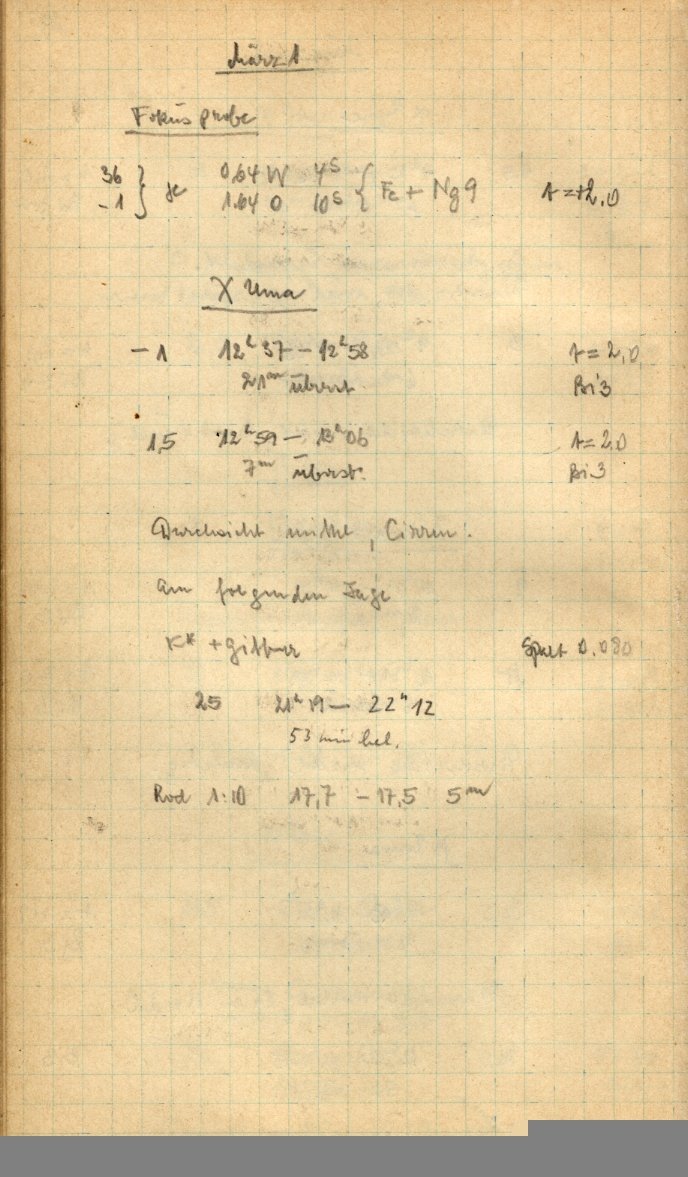 März 1
Fokusprobe
36 } 0,64 W 4s { Fe + Ng 9 A = +2.0
-1 } 1.64 O 10s {
X Uma
-1 12h37 - 12h58 A = 2,0
21m überst. Bi 3
1,5 12h59 - 13h06 A = 2.0
7m überst. Bi 3
Durchsicht mittel, Cirren!
Am folgenden Tage
K* + Gitter Spalt 0.080
25 21h19 - 22h12
53 min bel.
Rod 1:10 17,7 - 17,5 5m